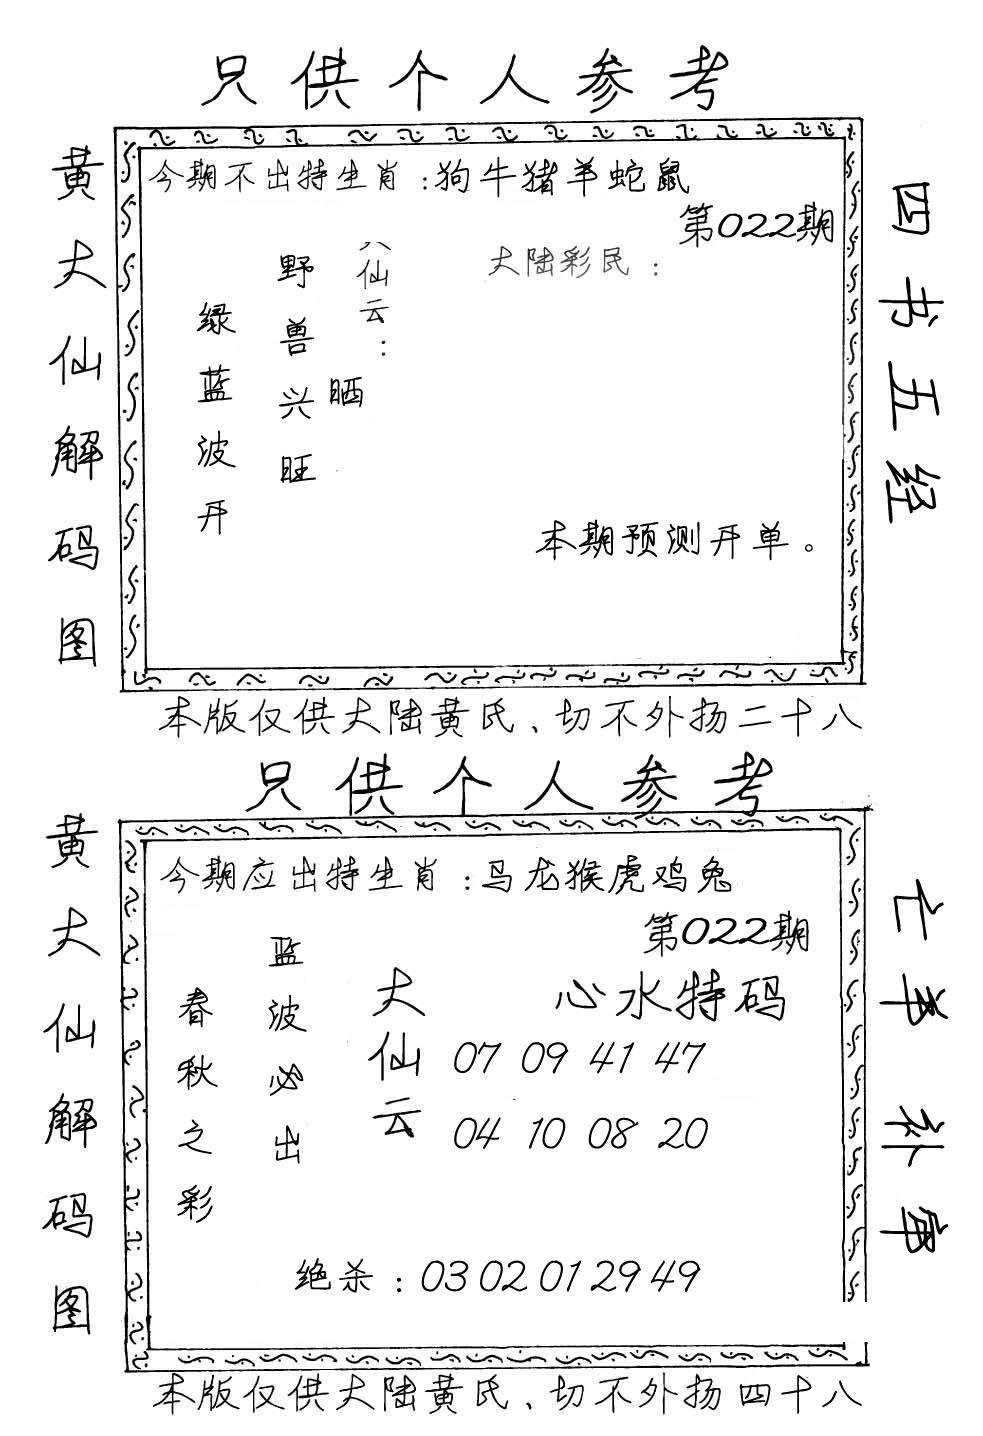 只供个人参考
黄大仙解码图
今期不出特生肖:狗牛猪羊蛇鼠
第022期
大陆彩民:
仙云:
晒
野兽兴旺
绿蓝波开
本期预测开单。
四书五经
本版仅供大陆黄氏、切不外扬二十八
只供个人参考
黄大仙解码图
今期应出特生肖:马龙猴虎鸡兔
第022期
心水特码
大仙云
07 09 41 47
04 10 08 20
蓝波必出
春秋之彩
绝杀:03 02 01 29 49
亡羊补牢
本版仅供大陆黄氏、切不外扬四十八